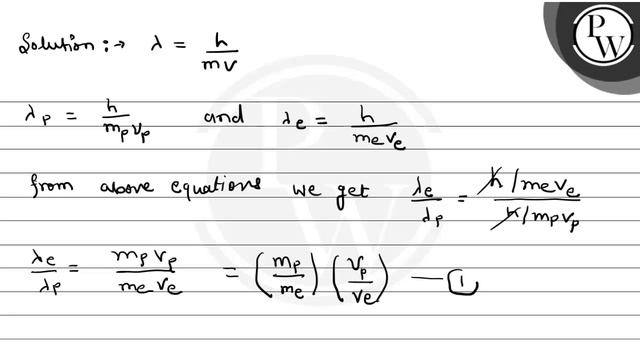 Solution :→ λ = h/mv
PW
λp = h/mpvp and λe = h/meve
from above equations we get λe/λp = h/meve / h/mpvp
λe/λp = mpvp/meve = (mp/me) (vp/ve) — 1